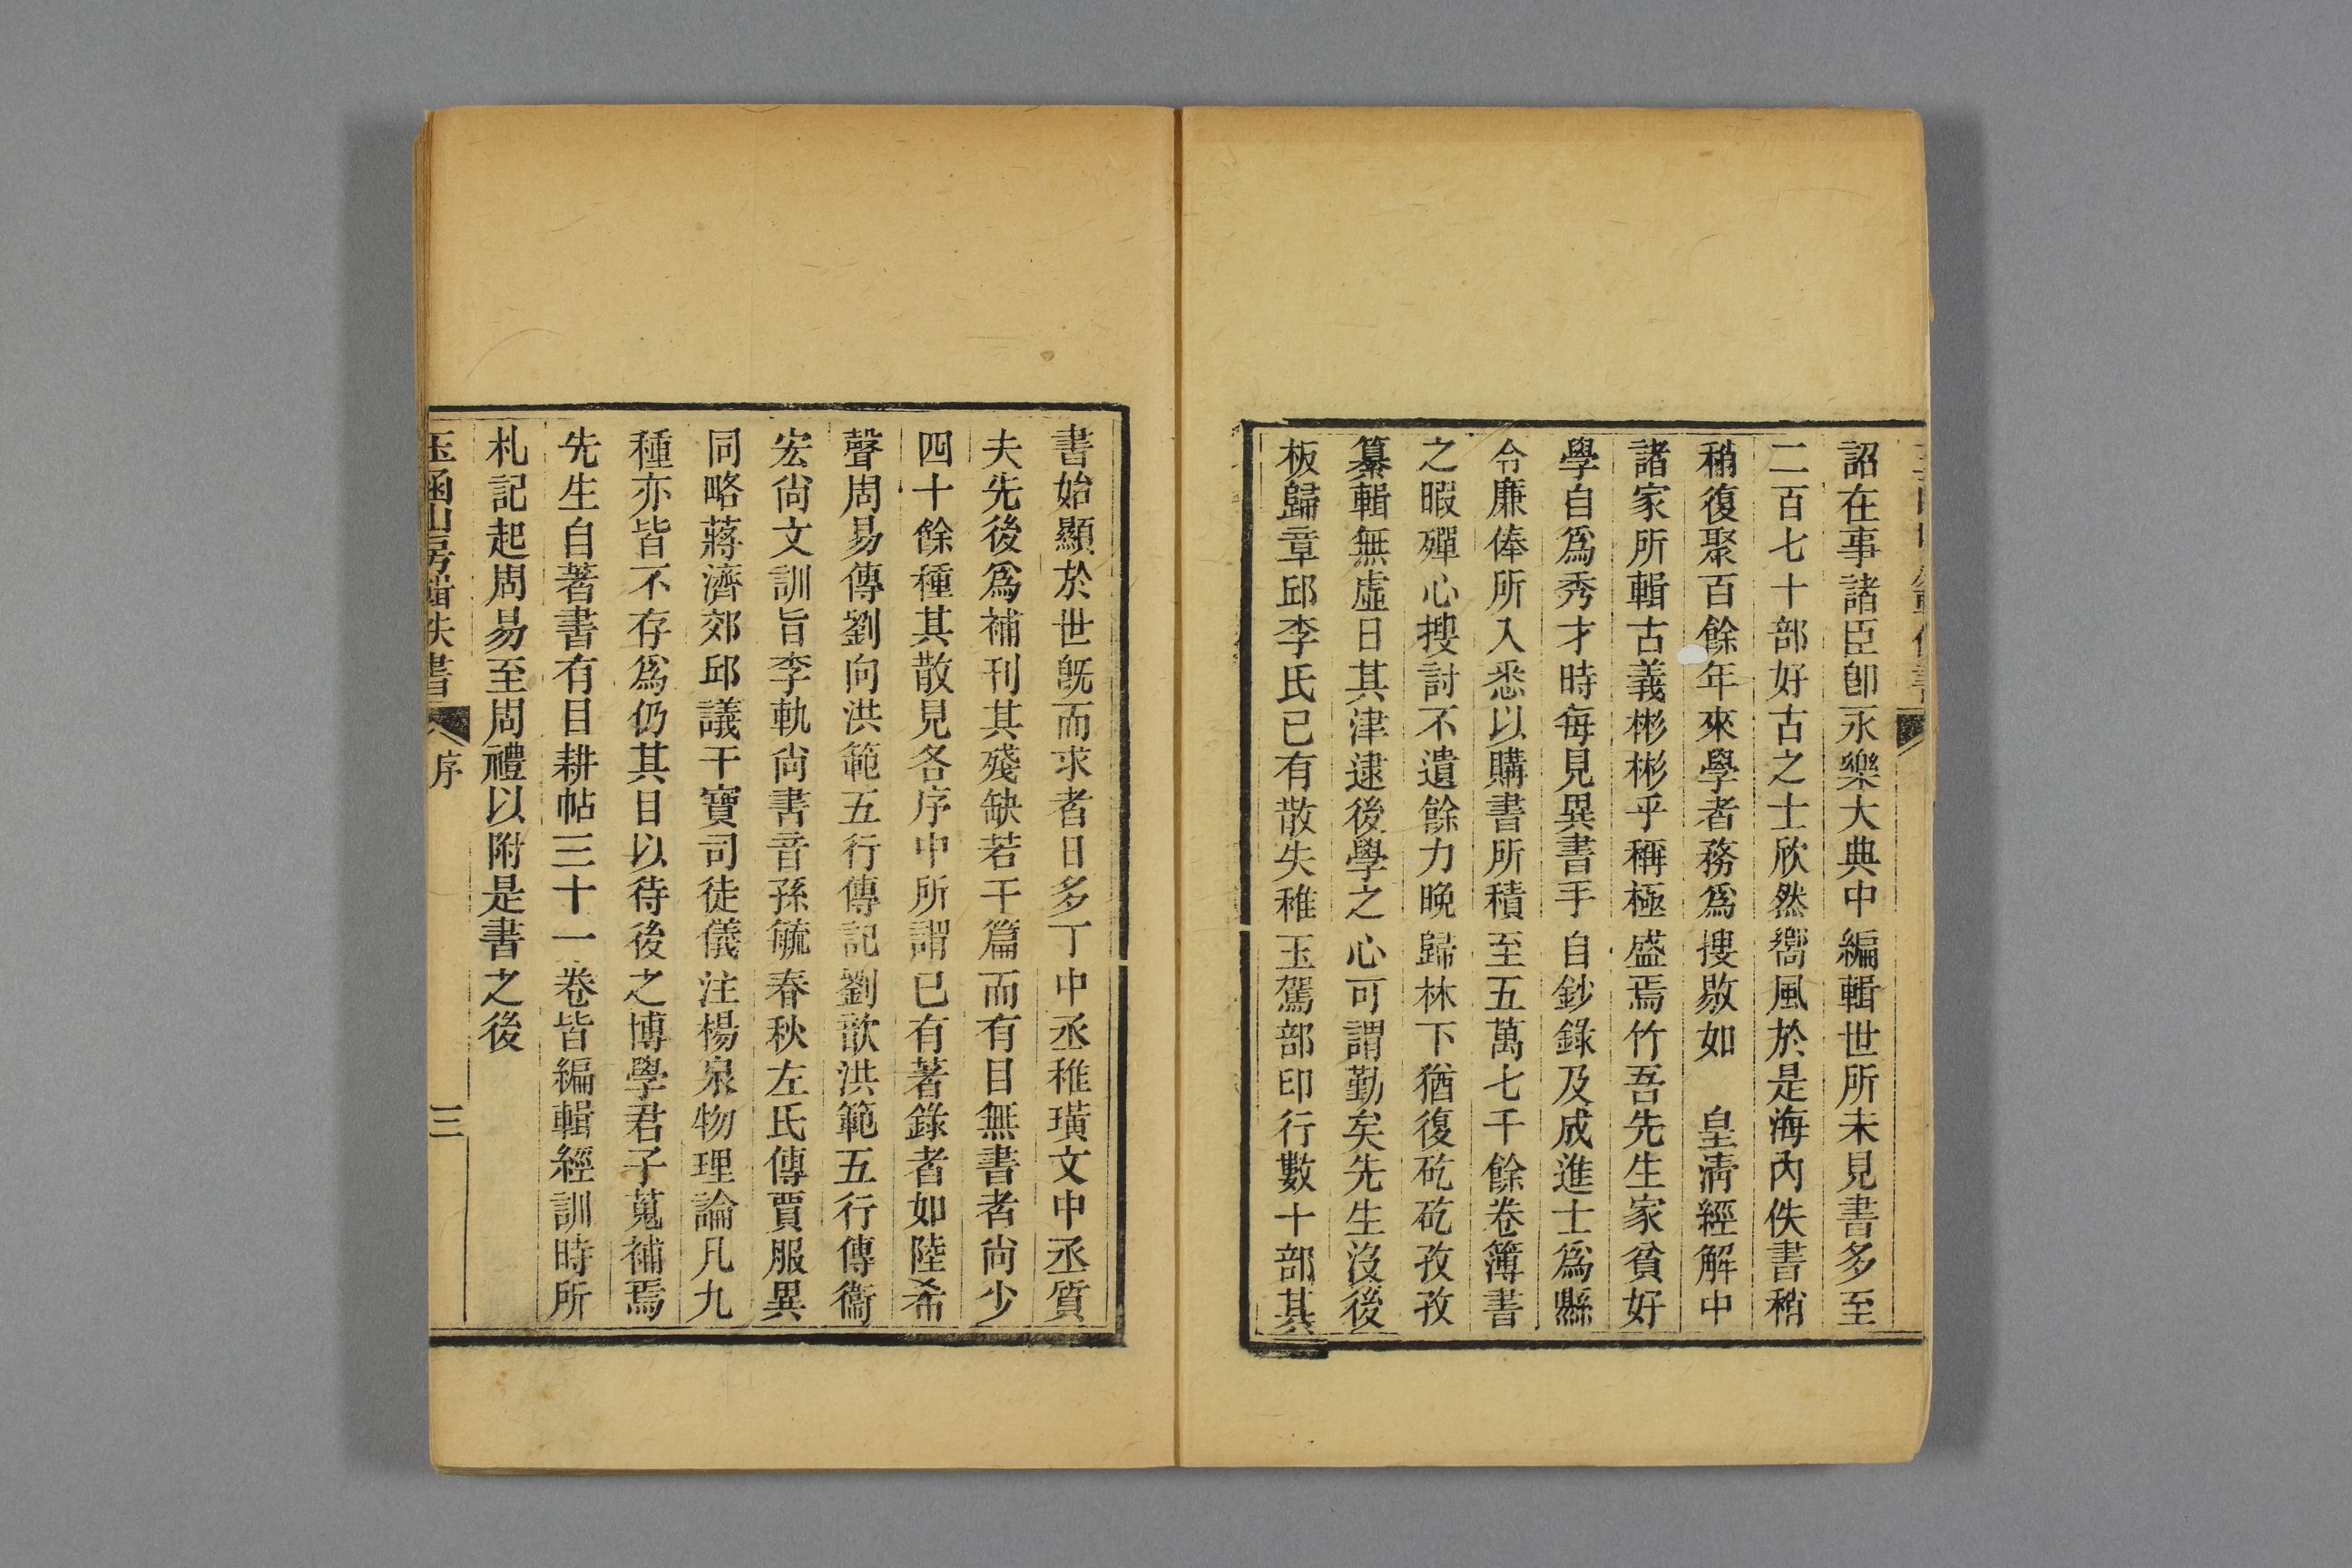 詔在事諸臣卽永樂大典中編輯世所未見書多至
二百七十部好古之士欣然嚮風於是海內佚書稍
稍復聚百餘年來學者務爲搜敭如 皇淸經解中
諸家所輯古義彬彬乎稱極盛焉竹吾先生家貧好
學自爲秀才時每見異書手自鈔錄及成進士爲縣
令廉俸所入悉以購書所積至五萬七千餘卷簿書
之暇殫心搜討不遺餘力晚歸林下猶復矻矻孜孜
纂輯無虛日其津逮後學之心可謂勤矣先生沒後
板歸章邱李氏已有散失稚玉駕部印行數十部其
書始顯於世旣而求者日多丁中丞稚璜文中丞質
夫先後爲補刊其殘缺若干篇而有目無書者尙少
四十餘種其散見各序中所謂已有著錄者如陸希
聲周易傳劉向洪範五行傳記劉歆洪範五行傳衞
宏尙文訓旨李軌尙書音孫毓春秋左氏傳賈服異
同略蔣濟郊邱議干寶司徒儀注楊泉物理論凡九
種亦皆不存爲仍其目以待後之博學君子蒐補焉
先生自著書有目耕帖三十一卷皆編輯經訓時所
札記起周易至周禮以附是書之後
玉函山房輯佚書 序 三